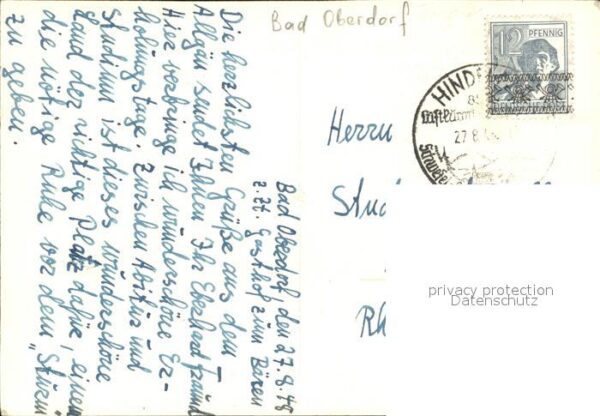 Bad Oberdorf
12 PFENNIG
HINDE
27.8.
Bad Oberdorf den 27.8.48
z. Zt. Gasthof zum Bären
Die herzlichsten Grüße aus dem
Allgäu sendet Ihnen Ihr Eberhard
Hier verbringe ich wunderschöne Er-
holungstage. Zwischen Abitur und
Studium ist dieses wunderschöne
Land der richtige Platz dafür, einem
die nötige Ruhe vor dem "Sturm"
zu geben.
Herrn
Stud
Rh
privacy protection
Datenschutz